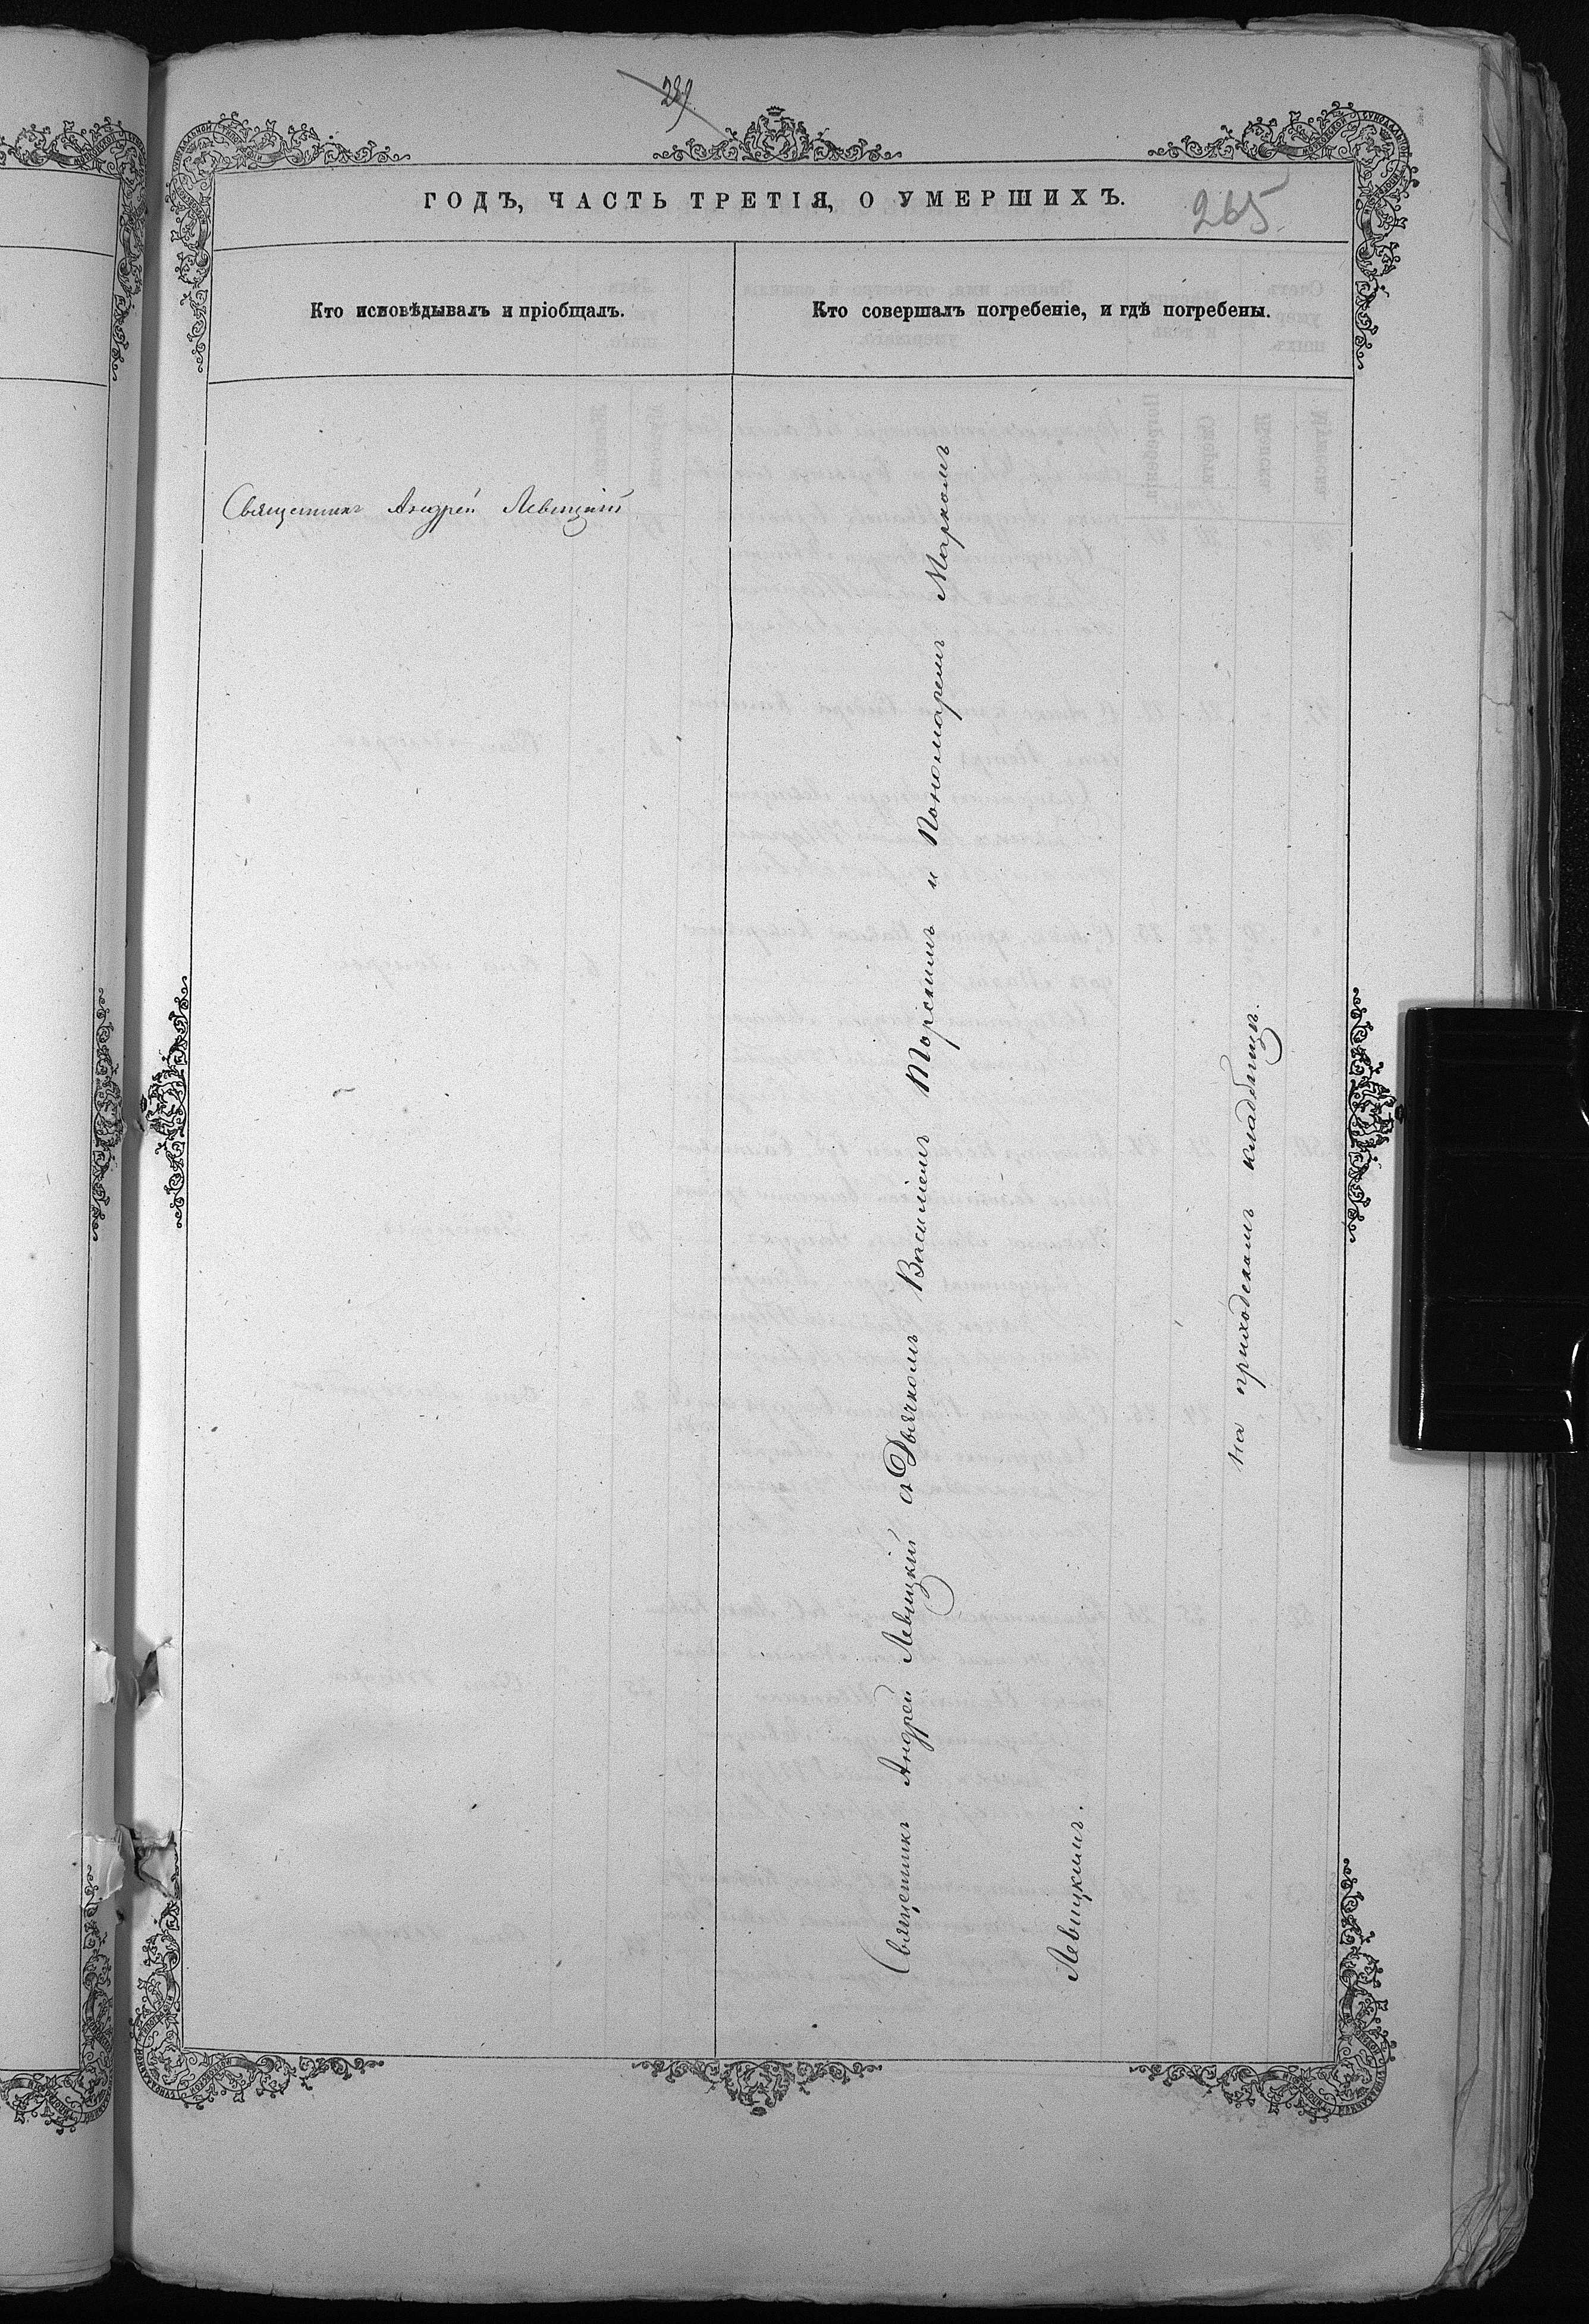 239
ГОДЪ, ЧАСТЬ ТРЕТІЯ, О УМЕРШИХЪ.
265.
Кто исповѣдывалъ и пріобщалъ.
Кто совершалъ погребеніе, и гдѣ погребены.
Священникъ Андрей Левицкій
Священникъ Андрей Левицкій съ Дьячкомъ Василіемъ Торскимъ и Пономаремъ Маркомъ
Левицкимъ.
на приходскомъ кладбищѣ.